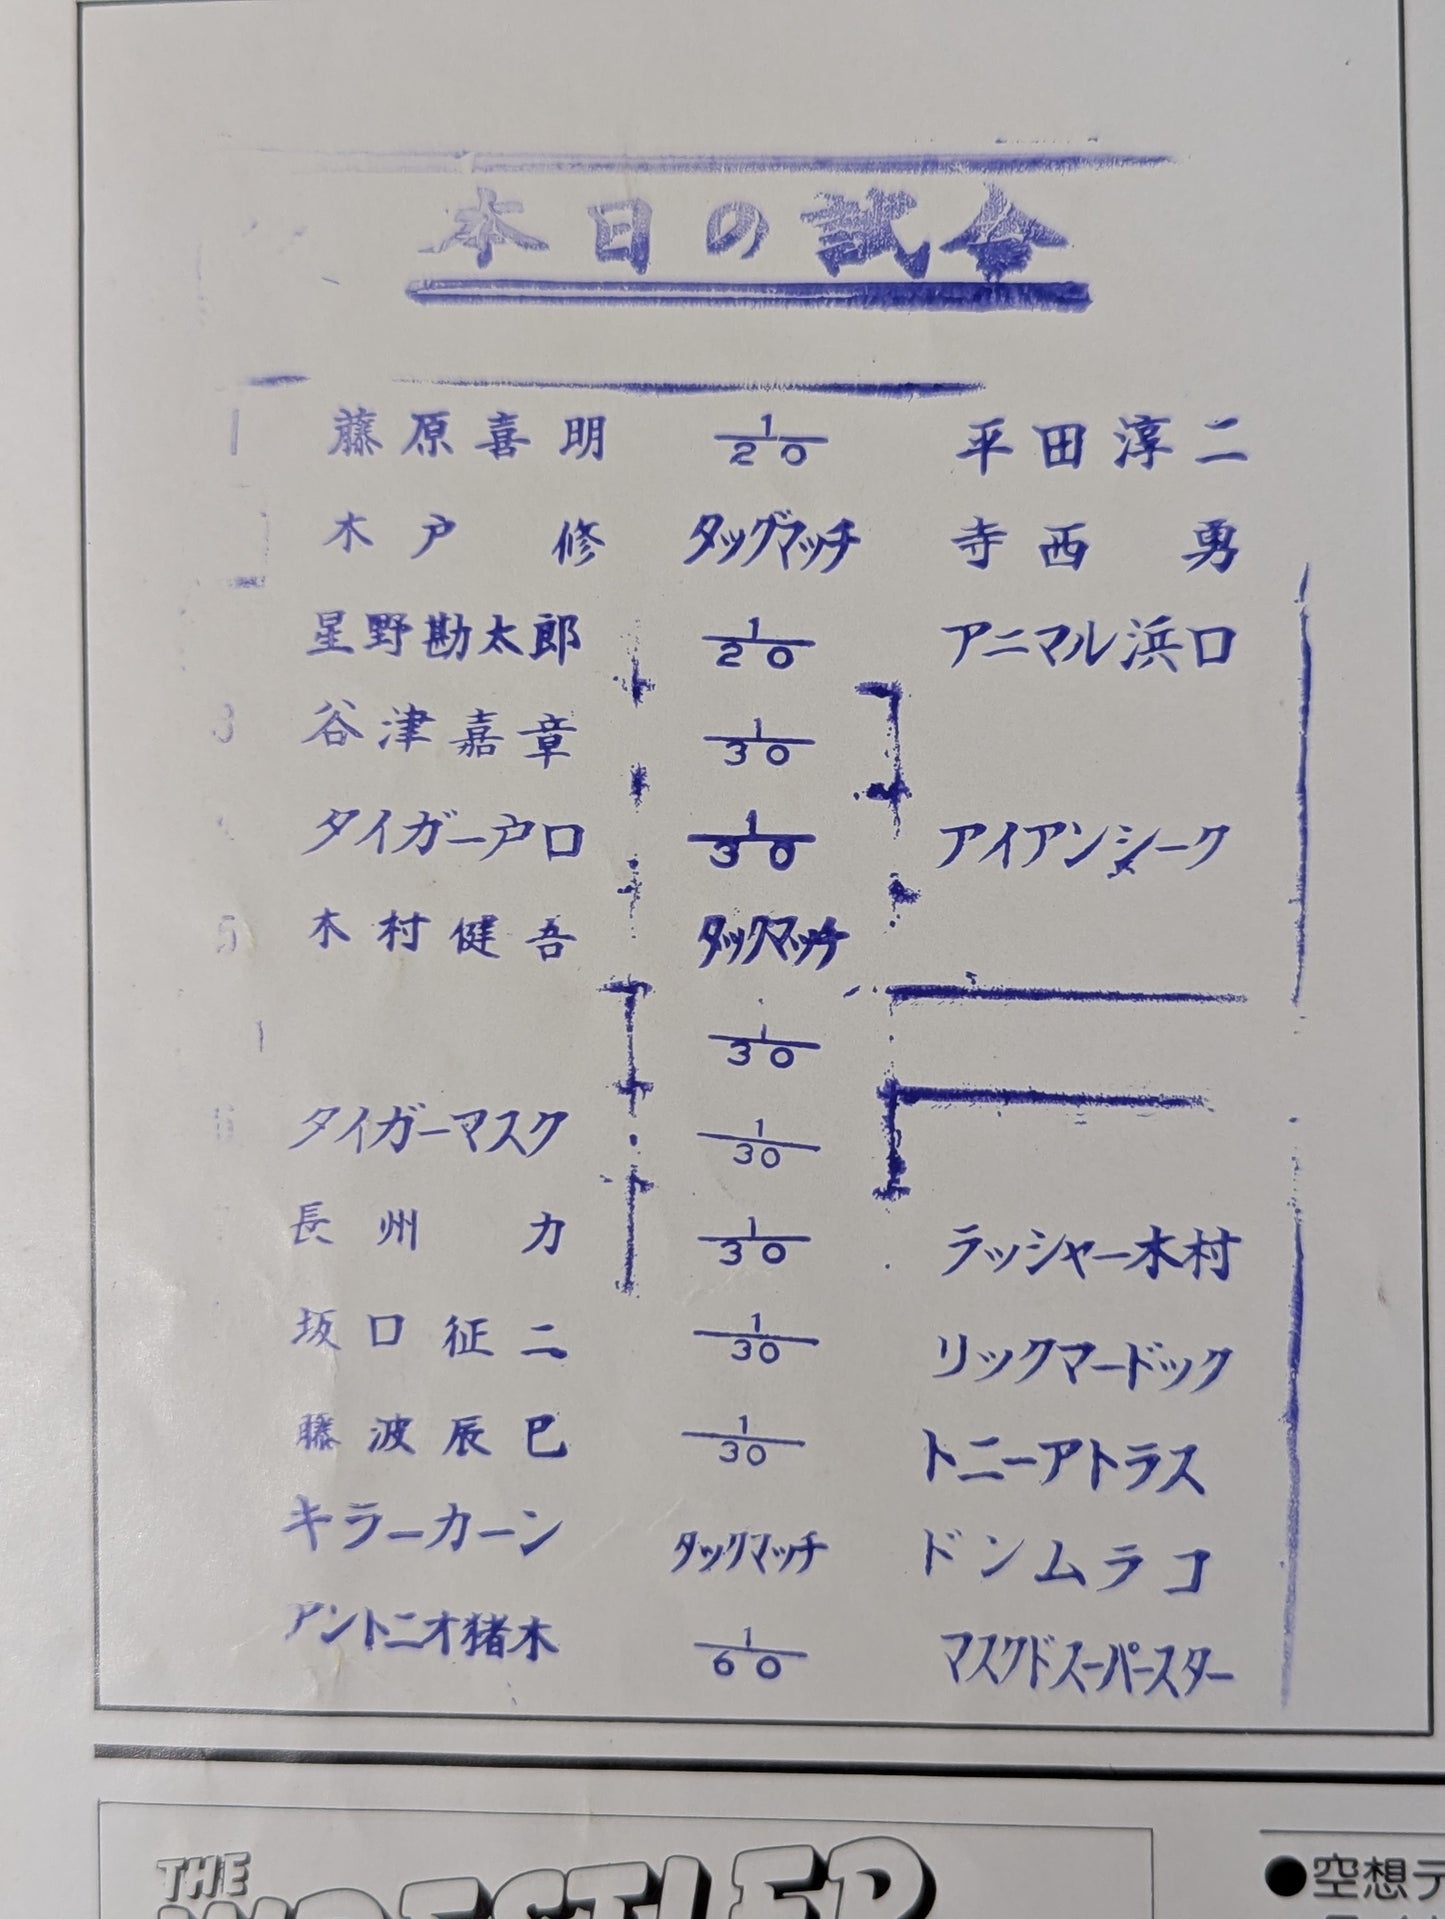 本日の試合
1 藤原喜明 1/20 平田淳二
木戸修 タッグマッチ 寺西勇
星野勘太郎 1/20 アニマル浜口
3 谷津嘉章 1/30
タイガー戸口 1/30 アイアンシーク
5 木村健吾 タックマッチ
1/30
6 タイガーマスク 1/30
長州力 1/30 ラッシャー木村
坂口征二 1/30 リックマードック
藤波辰巳 1/30 トニーアトラス
キラーカーン タックマッチ ドンムラコ
アントニオ猪木 1/60 マスクドスーパースター
THE
WRESTLER
●空想テ